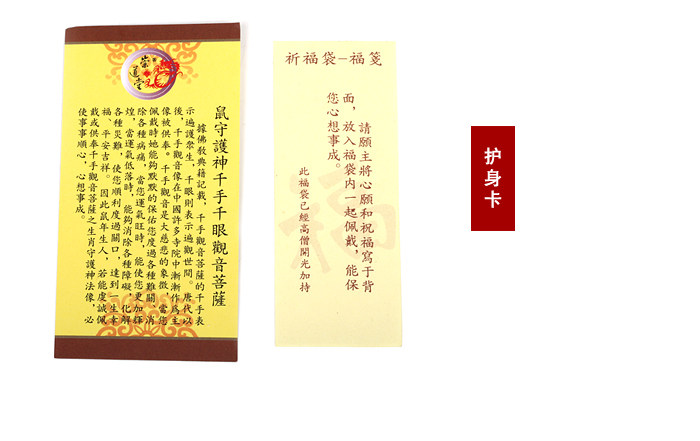 崇道堂
鼠守護神千手千眼觀音菩薩
據佛教典籍記載，千手觀音菩薩的千手表
示遍護衆生，千眼則表示遍觀世間。唐代以
後，千手觀音像在中國許多寺院中漸漸作爲主
像被供奉。千手觀音是大慈悲的象徵，當您
佩戴時她能夠默默的保佑您度過各種難關，消
除各種病痛，當您運氣旺時，能使您更加輝
煌，當運氣低落時，能夠消除各種障礙，化解
各種災難，使您順利度過關口，達到一生幸
福、平安吉祥。因此鼠年生人，若能虔誠佩
戴或供奉千手觀音菩薩之生肖守護神法像，必
使事事順心，心想事成。
祈福袋-福笺
請願主將心願和祝福寫于背
面，放入福袋内一起佩戴，能保
您心想事成。
此福袋已經高僧開光加持
福
护身卡